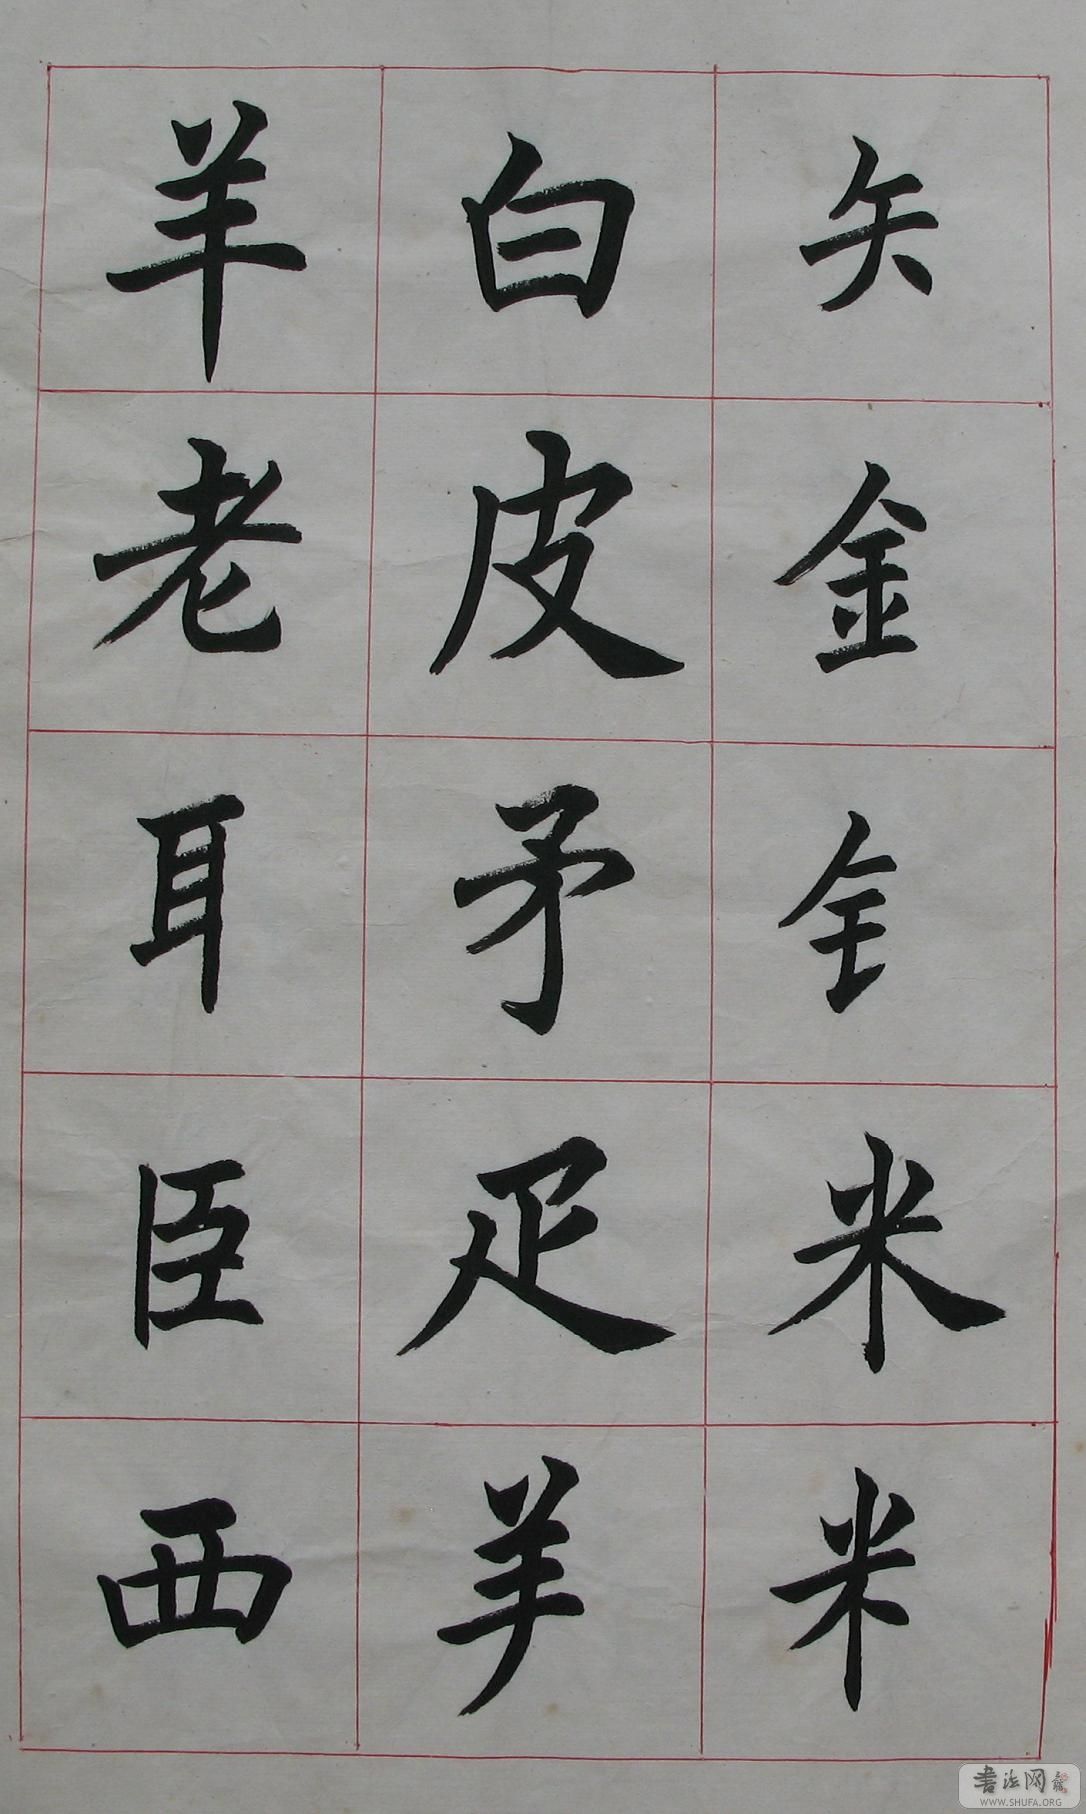 矢金钅米米
白皮矛疋羊
羊老耳臣西
書法网
WWW.SHUFA.ORG